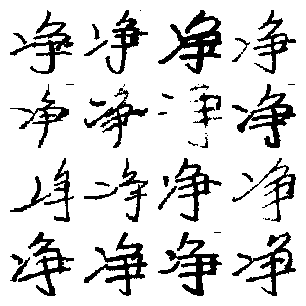 净净净净
净净净净
净净净净
净净净净